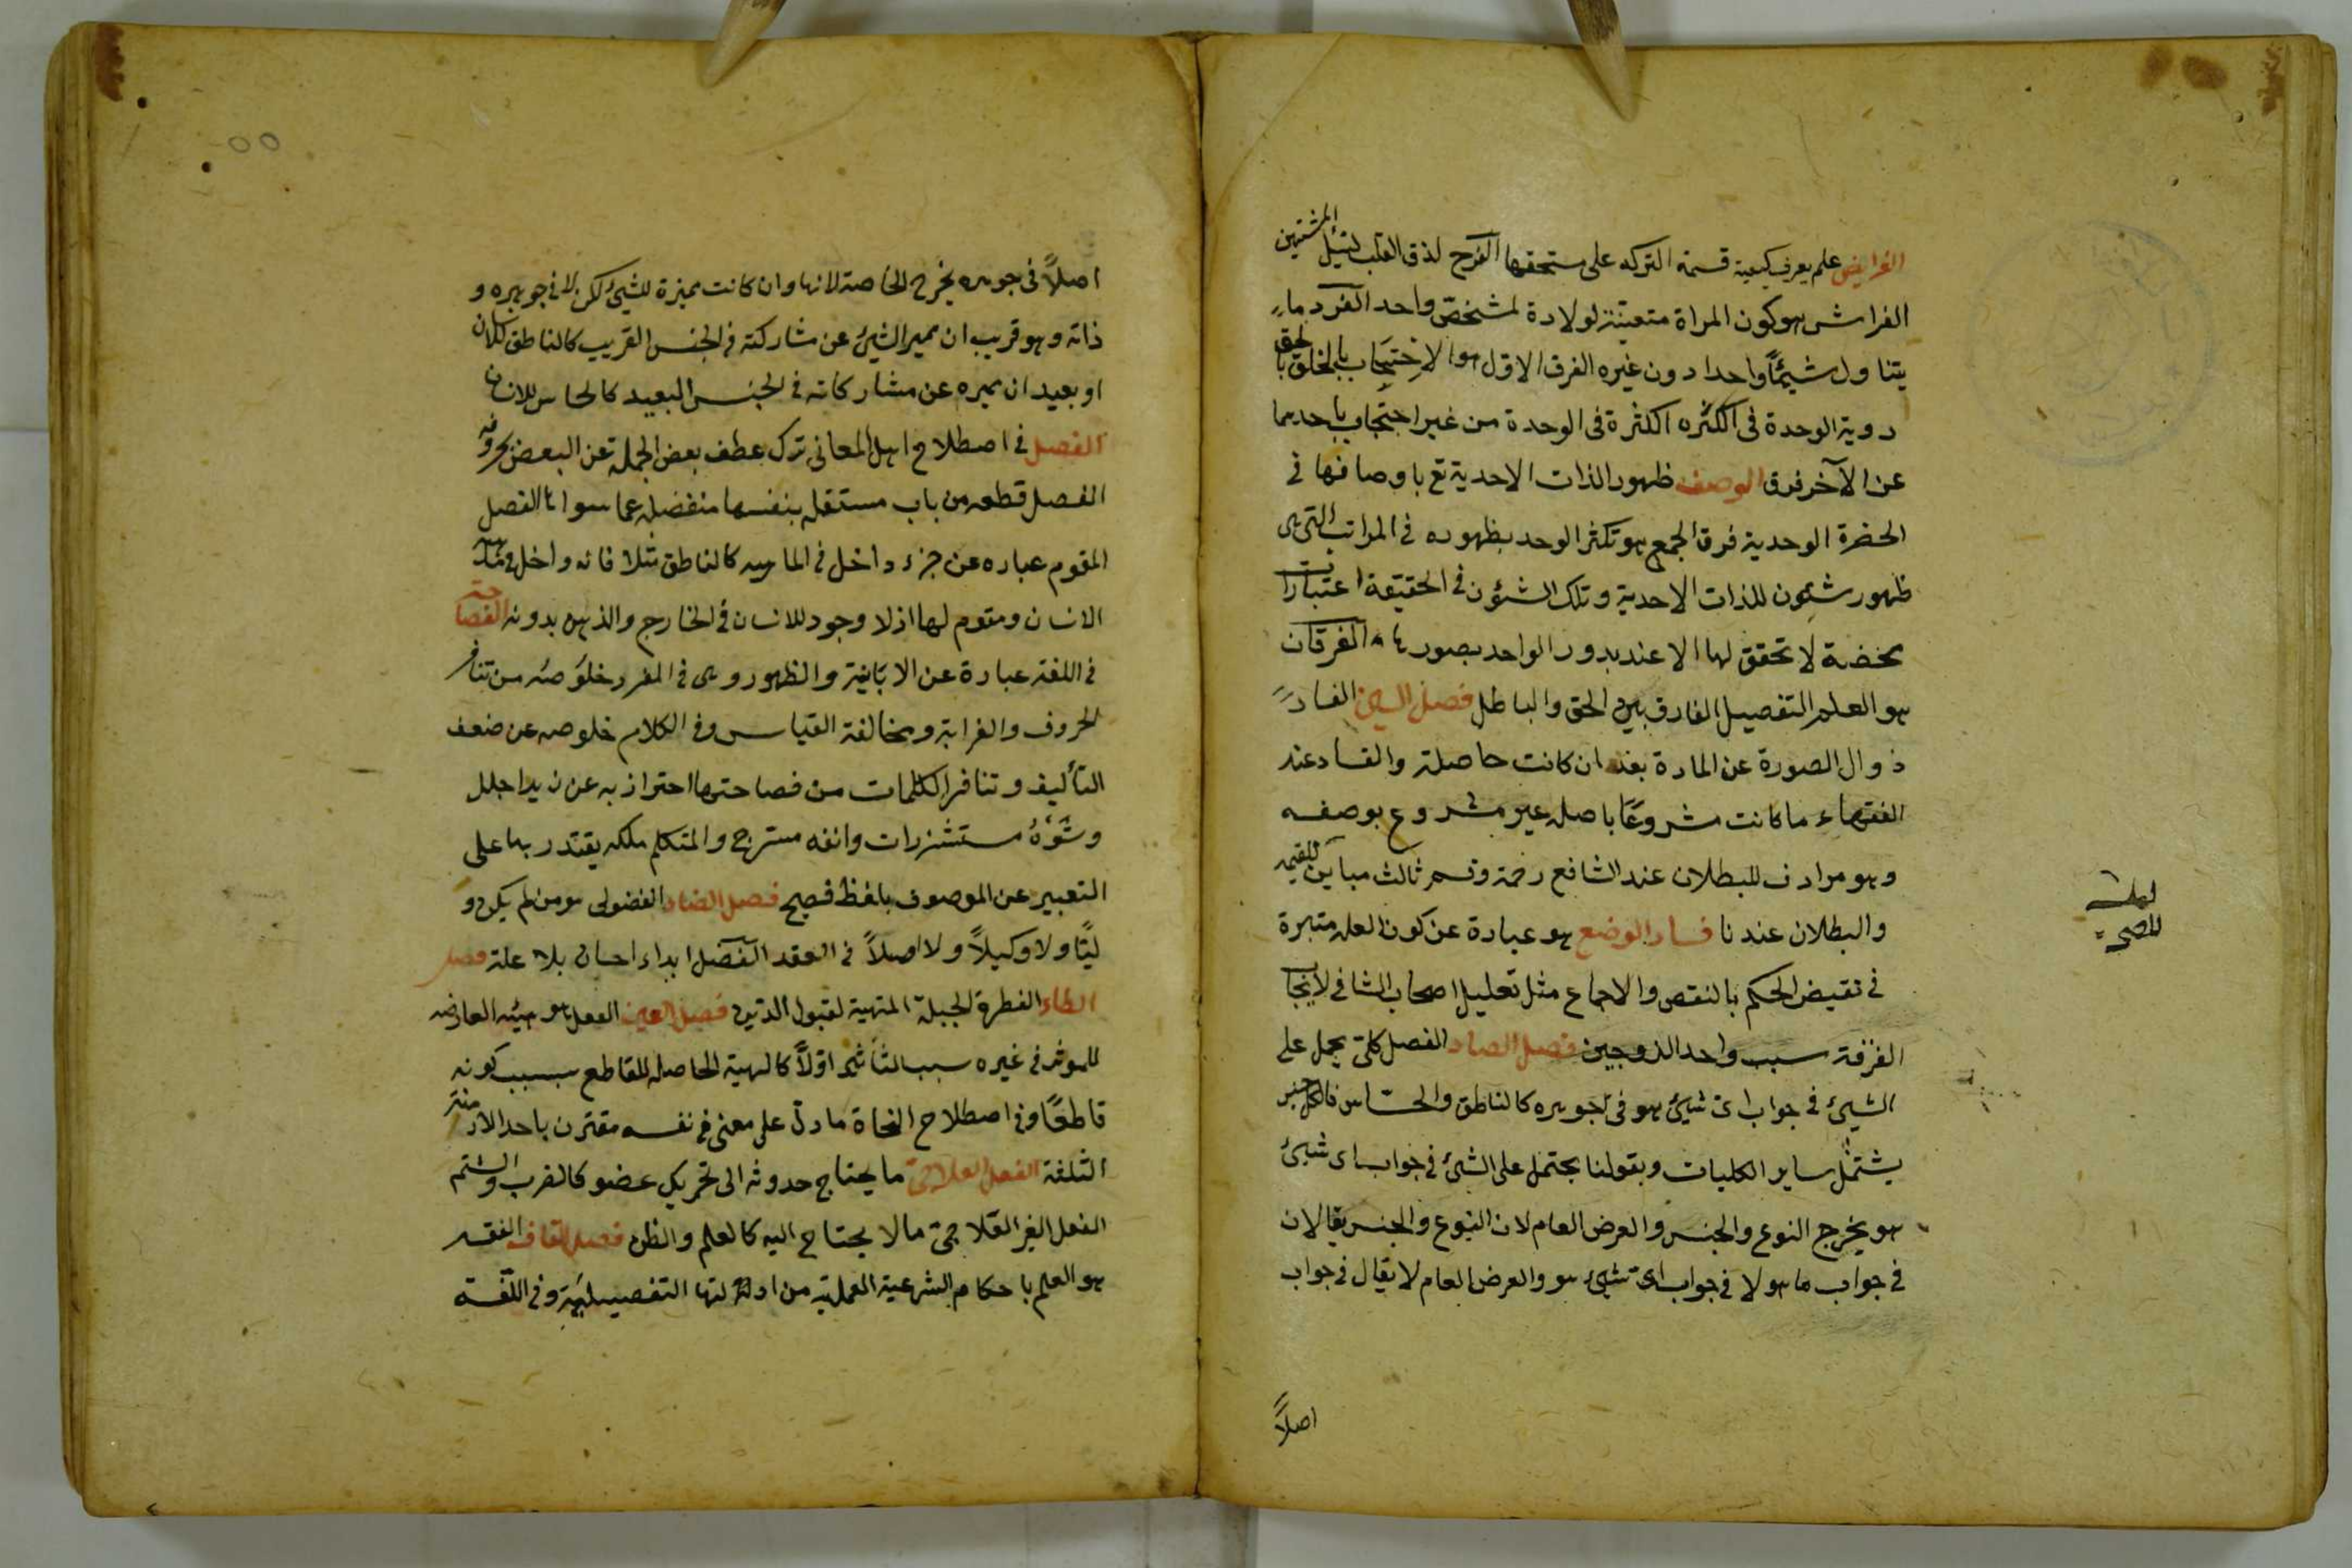 الفرايض علم يعرف كيفية قسمة التركه على مستحقها الفرح لذة القلب لنيل المشتهى
الفراش هو كون المراة متعينة لولادة لشخص واحد الفرد ما
يتناول شيئًا واحدا دون غيره الفرق الاول هو الاحتجاب بالخلق بالحق
روية الوحدة فى الكثره الكثرة فى الوحدة من غير احتجاب باحديهما
عن الآخر فرق الوصف ظهور الذات الاحدية باوصافها فى
الحضرة الوحدية فرق الجمع هو تكثر الوحد بظهوره فى المراتب التى هى
ظهور شئون للذات الاحدية وتلك الشئون فى الحقيقة اعتبارات
محضة لا تحقق لها الا عند بدور الواحد بصورها الفرقان
هو العلم التفصيل الفارق بين الحق والباطل فصل السين الفساد
زوال الصورة عن المادة بعد ان كانت حاصلة والفساد عند
الفقهاء ما كانت مشروعًا باصله غير مشروع بوصفه
وهو مرادف للبطلان عند الشافع رحمة وقسم ثالث مباين للصحة
والبطلان عندنا فساد الوضع هو عبارة عن كون العله معتبرة
فى نقيض الحكم بالنقص والاجماع مثل تعليل اصحاب الشافى لايجاب
الفرقة سبب واحد الزوجين فصل الصاد الفصل كلى يحمل على
الشيئ فى جواب اى شيئ هو فى جوهره كالناطق والحساس فالكل جنس
يشتمل ساير الكليات وبقولنا يحتمل على الشئ فى جواب اى شيئ
هو يخرج النوع والجنس والعرض العام لان النوع والجنس يقالان
فى جواب ما هو لا فى جواب اى شيئ هو والعرض العام لا يقال فى جواب
اصلاً
اصلاً فى جوهره يخرج الخاصة لانها وان كانت مميزة للشيئ لكن لا فى جوهره و
ذاته وهو قريب ان مميز الشيئ عن مشاركته فى الجنس القريب كالناطق للانسان
او بعيد ان ميزه عن مشاركاته فى الجنس البعيد كالحاس للانسان
الفصل فى اصطلاح اهل المعانى ترك عطف بعض الجملة عن البعض بحروفه
الفصل قطعه من باب مستقله بنفسها منفصله عما سواها الفصل
المقوم عباره عن جزء داخل فى الماهيه كالناطق مثلا فانه داخل فى ماهية
الانسان ومقوم لها اذ لا وجود للانسان فى الخارج والذهن بدونه الفصاحة
فى اللغة عبارة عن الابانية والظهور وهى فى المفرد خلوصه من تنافر
الحروف والغرابة ومخالفة القياس وفى الكلام خلوصه عن ضعف
التأليف وتنافر الكلمات من فصاحتها احتراز به عن زيد اجلل
وشعره مستشزرات وانفه مسترج والمتكلم ملكه يقتدر بها على
التعبير عن الموصوف بلفظ فصيح فصل الضاد الفضولى هو من لم يكن و
ليًا ولا وكيلاً ولا اصلاً فى العقد الفضل ابداء احسان بلا علة فصل
الطاء الفطرة الجبلة المتهيه لقبول الدين فصل العين الفعل هو هيئه العارضه
للموثر فى غيره سبب التأثير اوّلاً كالهية الحاصله للقاطع بسبب كونه
قاطعًا وفى اصطلاح النحاة ما دل على معنى فى نفسه مقترن باحد الازمنة
الثلثة الفعل العلاجى ما يحتاج حدوثه الى تحريك عضو كالضرب والشتم
الفعل الغير العلاجى ما لا يحتاج اليه كالعلم والظن فصل القاف الفقه
هو العلم باحكام الشرعية العملية من ادلتها التفصيلية وفى اللغة